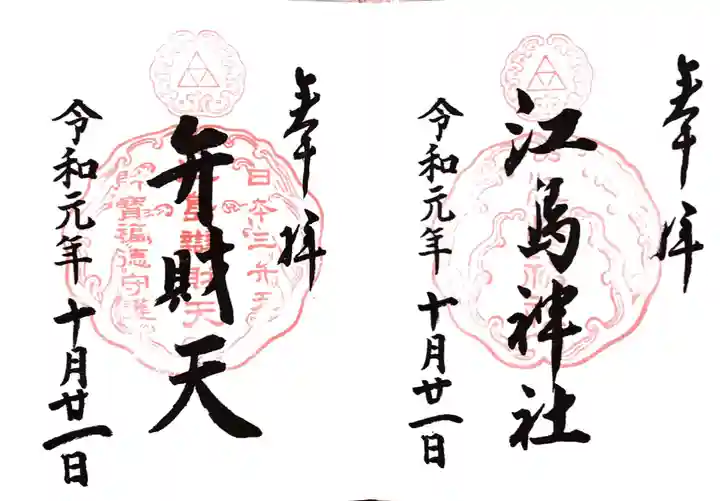 奉拝
江島神社
令和元年十月廿一日
奉拝
弁財天
令和元年十月廿一日
日本三弁天
江島辨財天
財寶福徳守護